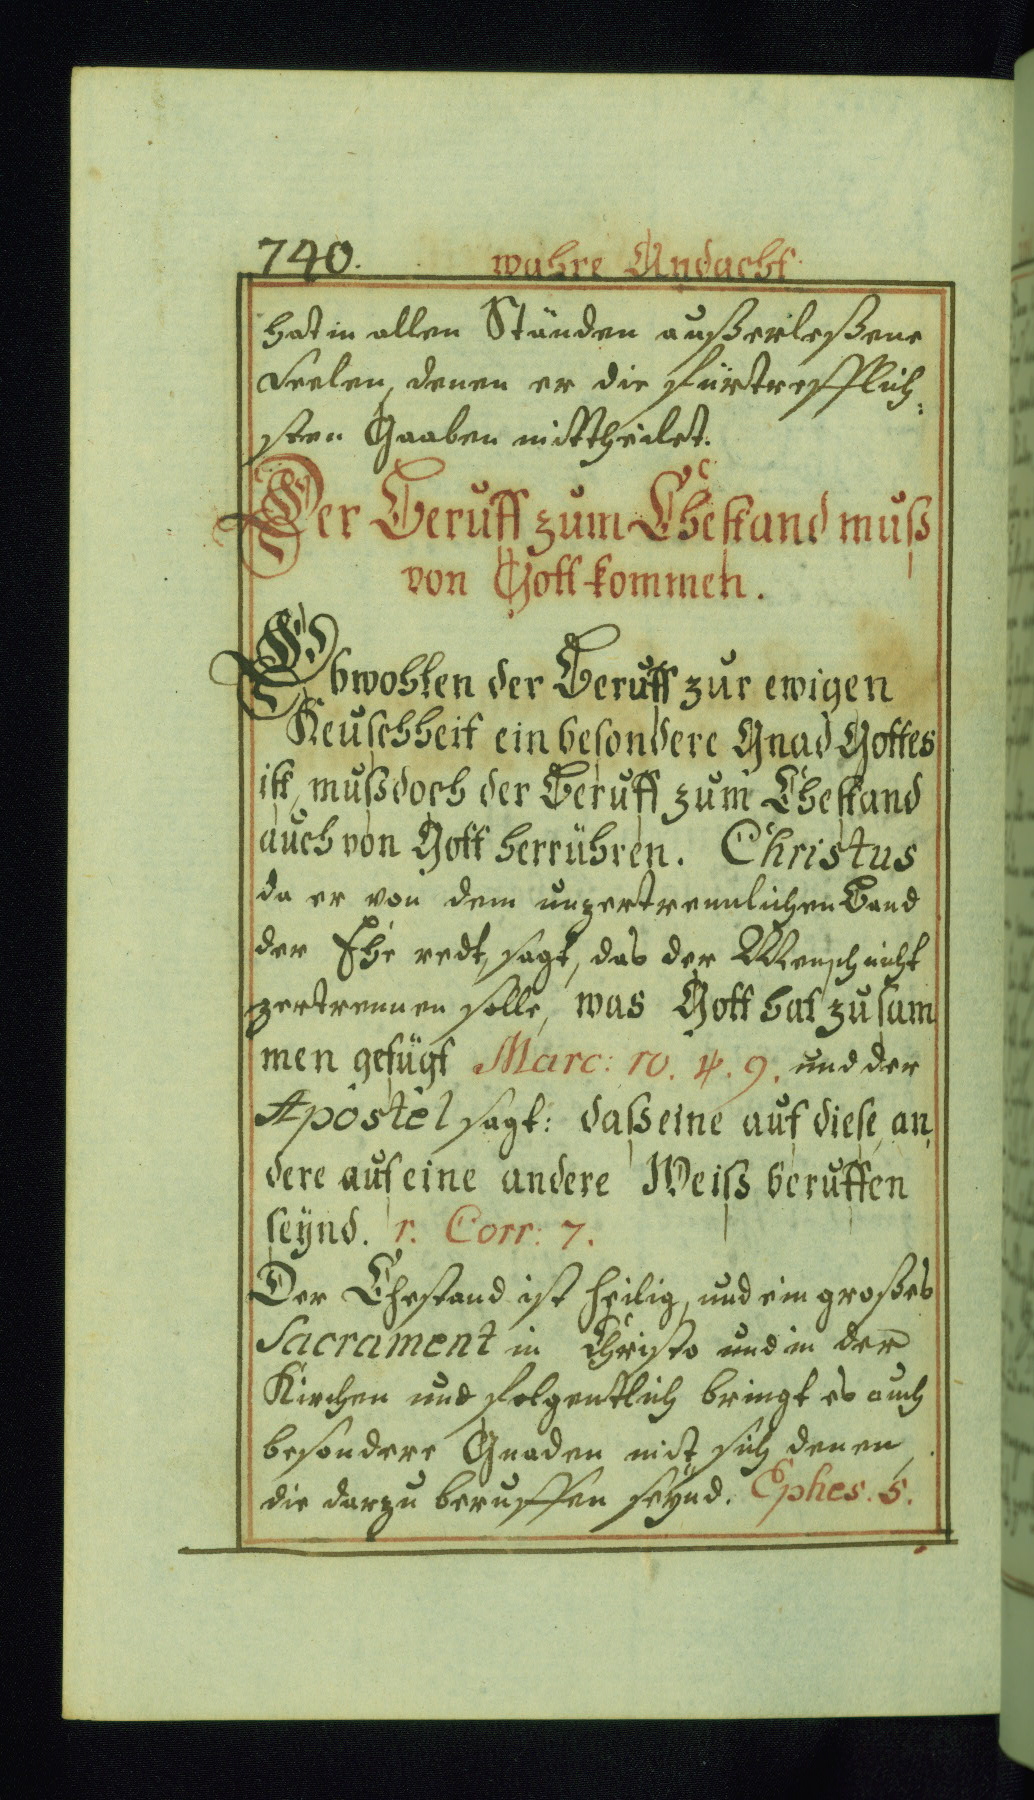 740. wahre Andacht
hat in allen Ständen außerleßene
Seelen, denen er die fürtrefflich:
sten Gaaben mittheilet.
Der Beruff zum Ehestand muß
von Gott kommen.
Obwohlen der Beruff zur ewigen
Keuschheit ein besondere Gnad Gottes
ist, muß doch der Beruff zum Ehestand
auch von Gott herrühren. Christus
da er von dem unzertrennlichen Band
der Ehe redt, sagt, das der Mensch nicht
zertrennen solle, was Gott hat zusam
men gefügt Marc: 10. ℣. 9. und der
Apostel sagt: daß eine auf diese, an
dere auf eine andere Weiß beruffen
seÿnd. 1. Corr: 7.
Der Ehestand ist heilig, und ein großes
Sacrament in Christo und in der
Kirchen und folgentlich bringt es auch
besondere Gnaden mit sich denen,
die darzu beruffen seÿnd. Ephes. 5.